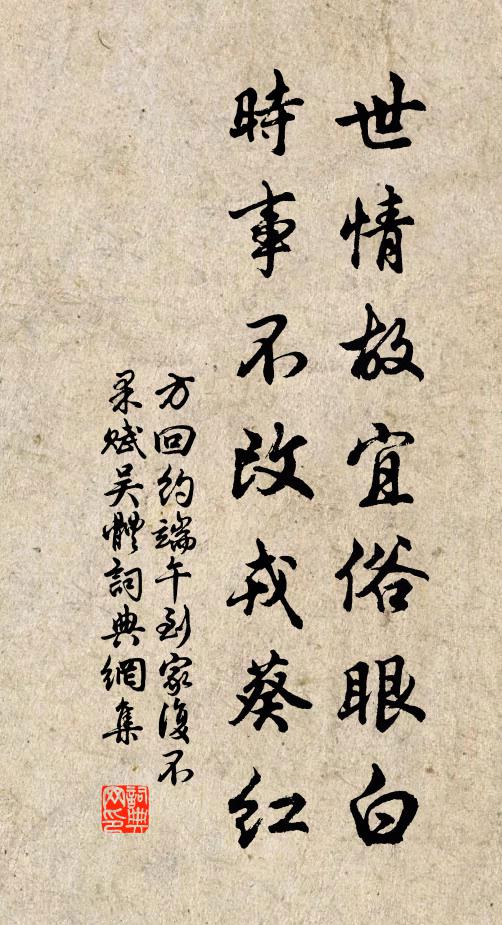 世情故宜俗眼白
時事不改戎葵紅
方回約端午到家復不
果賦吳體詞典網集
詞典網印